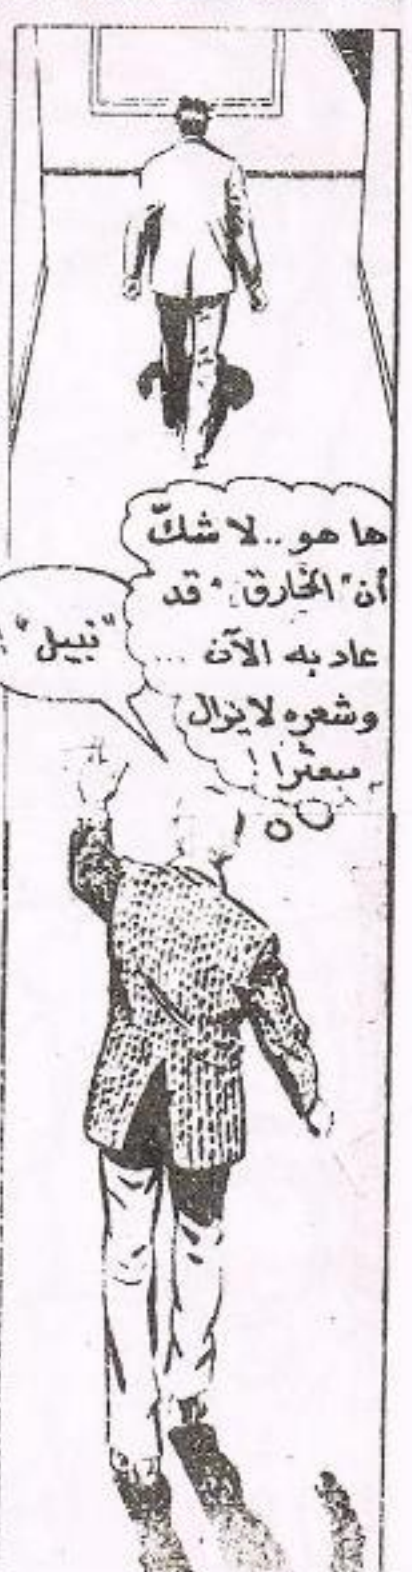 ها هو.. لا شكّ
أن "الخارق" قد
عاد به الآن ...
وشعره لا يزال
مبعثرا!
"نبيل"!